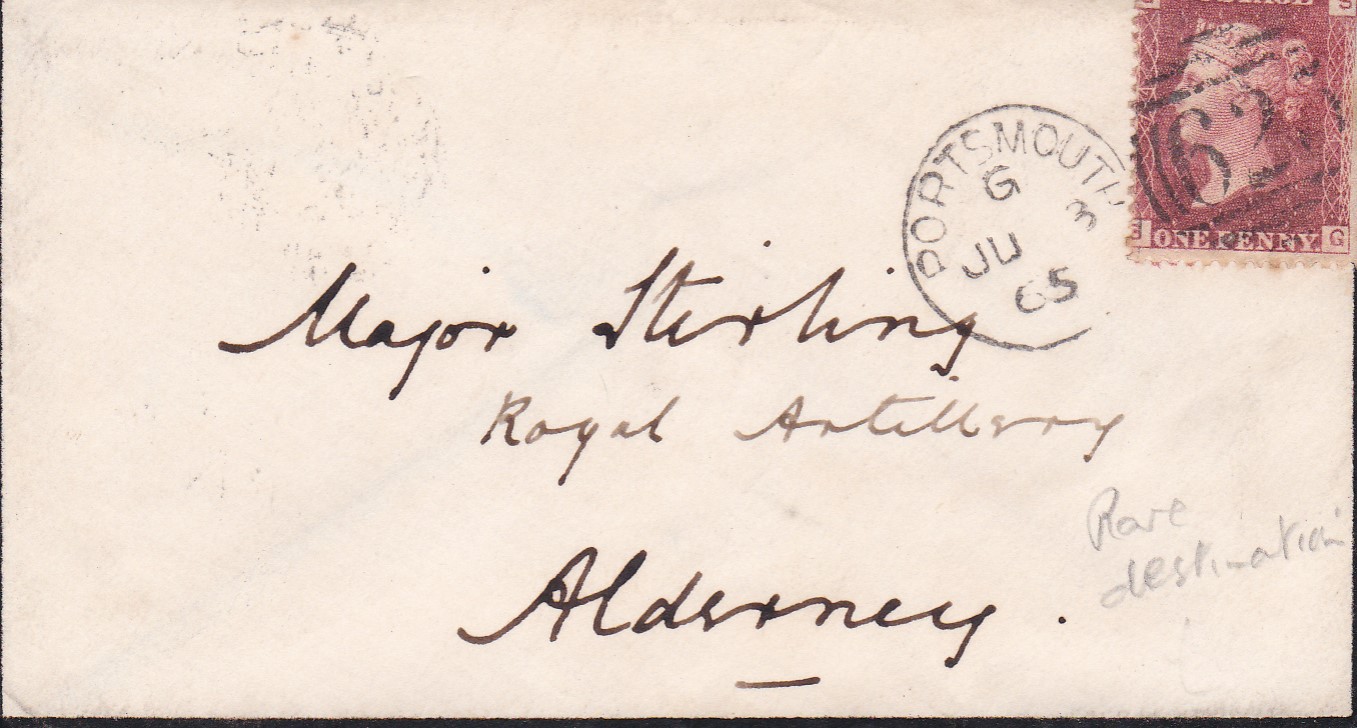 PORTSMOUTH
G
3
JU
65
ONE PENNY G
Major Sterling
Royal Artillery
Alderney.
Rare
destination